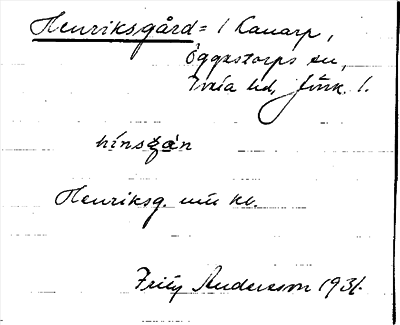 Henriksgård = 1 Kanarp,
Öggestorps sn,
Tveta hd, Jönk. l.
hínsgá̱n
Henriksg. uti kl.
Fritz Andersson 1931.